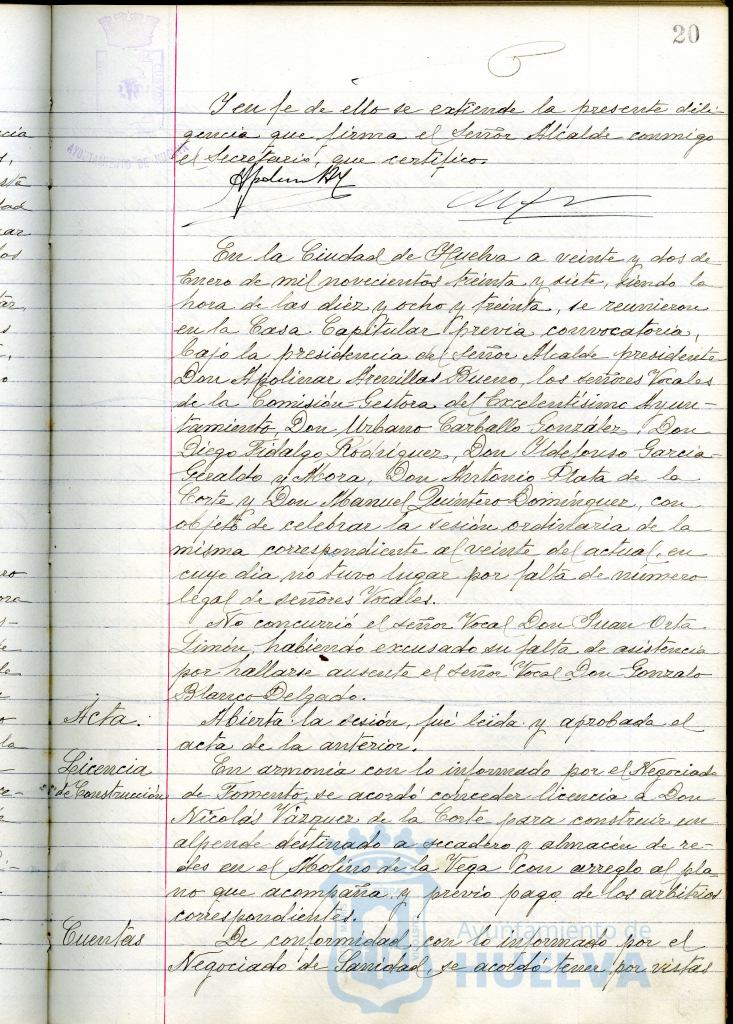 20
Y en fe de ello se extiende la presente dili-
gencia que firma el Señor Alcalde conmigo
el Secretario, que certifico.
AYUNTAMIENTO DE HUELVA
En la Ciudad de Huelva a veinte y dos de
Enero de mil novecientos treinta y siete, siendo la
hora de las diez y ocho y treinta, se reunieron
en la Casa Capitular previa convocatoria,
bajo la presidencia del Señor Alcalde presidente
Don Apolinar Arenillas Bueno, los señores Vocales
de la Comisión Gestora del Excelentísimo Ayun-
tamiento Don Urbano Carballo González, Don
Diego Fidalgo Rodríguez, Don Ildefonso Garcia-
Geraldo y Mora, Don Antonio Plata de la
Corte y Don Manuel Quintero Domínguez, con
objeto de celebrar la sesión ordinaria de la
misma correspondiente al veinte del actual, en
cuyo dia no tuvo lugar por falta de número
legal de señores Vocales.
No concurrió el señor Vocal Don Juan Orta
Limón, habiendo excusado su falta de asistencia
por hallarse ausente el señor Vocal Don Gonzalo
Blanco Delgado.
Acta.
Abierta la sesión, fué leida y aprobada el
acta de la anterior.
Licencia
de Construcción
En armonía con lo informado por el Negociado
de Fomento, se acordó conceder licencia a Don
Nicolás Vázquez de la Corte para construir un
alpende destinado a secadero y almacén de re-
des en el Molino de la Vega con arreglo al pla-
no que acompaña y previo pago de los arbitrios
correspondientes.
Cuentas
De conformidad con lo informado por el
Negociado de Sanidad, se acordó tener por vistas
Ayuntamiento de
HUELVA